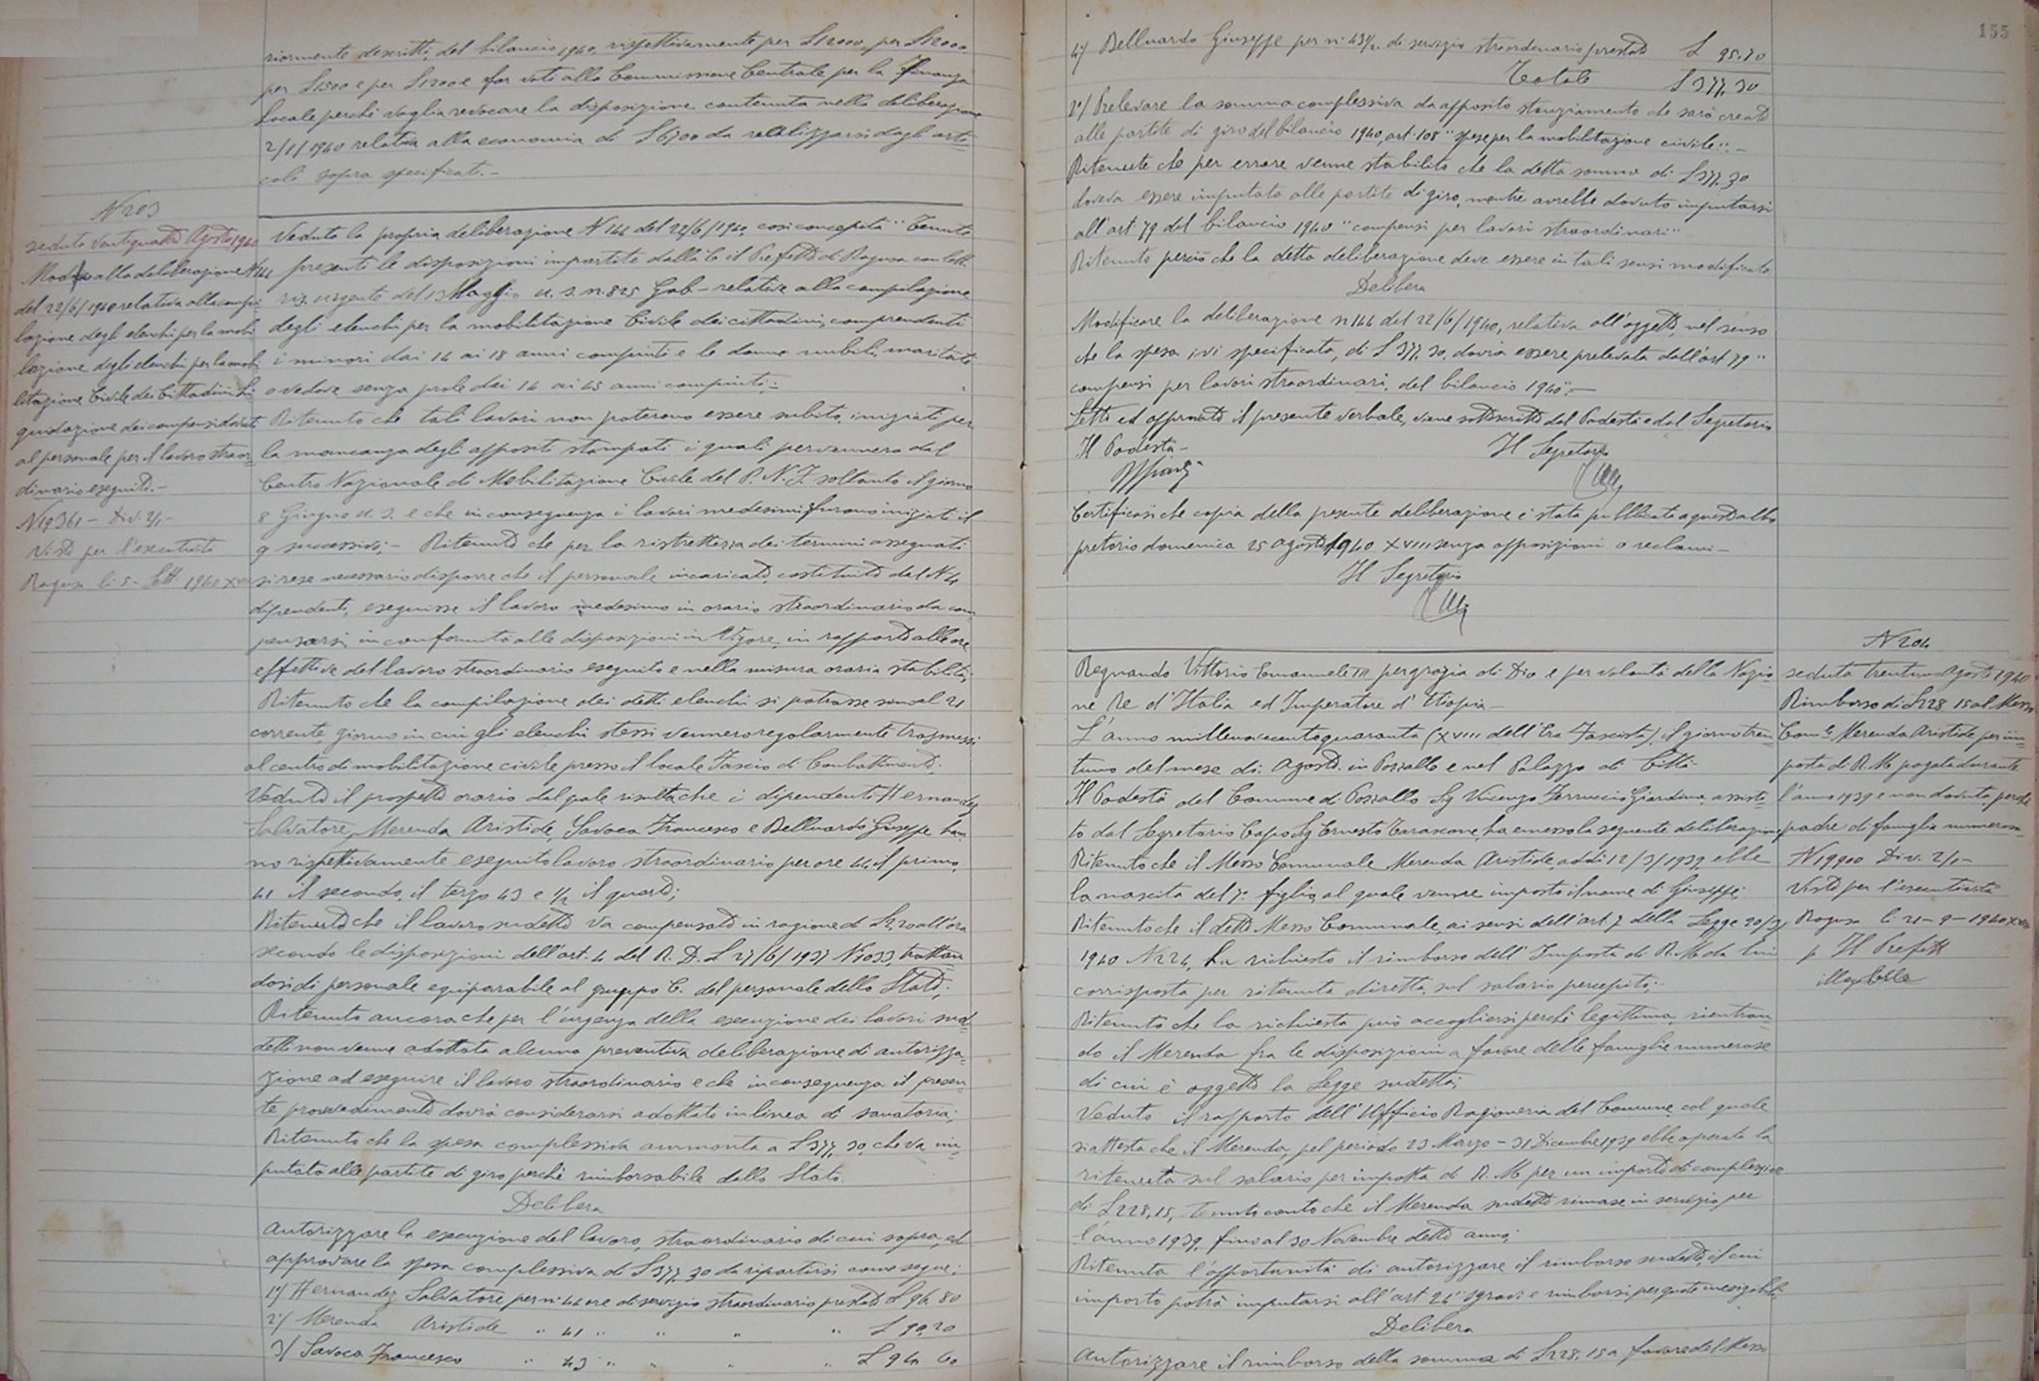 riormente descritti, del bilancio 1940, rispettivamente per L 12000, per L 12000
per L 1500 e per L 12000 e far voti alla Commissione Centrale per la Finanza
Locale perché voglia revocare la disposizione contenuta nella deliberazione
2/1/1940 relativa alla economia di L 6700 da realizzarsi dagli arti-
coli sopra specificati.-
N 203
seduta ventiquattro Agosto 1940
Modifica alla deliberazione N 144
del 22/6/1940 relativa alla compi-
lazione degli elenchi per la mobi-
lazione degli elenchi per la mobi
litazione Civile dei Cittadini Li
quidazione dei compensi dovuti
al personale per il lavoro straor-
dinario eseguito.-
N 19361 - Div. 2/1-
Visto per l'esecutività
Ragusa li 5 - Sett. 1940 XVIII
Veduta la propria deliberazione N 144 del 22/6/1940, così concepita " Tenute
presenti le disposizioni impartite dalla E. il Prefetto di Ragusa con lett.
ris. urgente del 13 Maggio u. s. n. 825 Gab - relativa alla compilazione
degli elenchi per la mobilitazione Civile dei cittadini, comprendenti
i minori dai 14 ai 18 anni compiuti e le donne nubili, maritate
o vedove senza prole dai 14 ai 45 anni compiuti;-
Ritenuto che tali lavori non poterono essere subito iniziati per
la mancanza degli appositi stampati i quali pervennero dal
Centro Nazionale di Mobilitazione Civile del P. N. F. soltanto il giorno
8 Giugno u. s. e che in conseguenza i lavori medesimi furono iniziati il
9 successivi;- Ritenuto che per la ristrettezza dei termini assegnati
si rese necessario disporre che il personale incaricato, costituito dal N 4
dipendenti, eseguisse il lavoro medesimo in orario straordinario da com-
pensarsi, in conformità alle disposizioni in vigore, in rapporto alle ore
effettive del lavoro straordinario eseguito e nella misura oraria stabilita;
Ritenuto che la compilazione dei detti elenchi si potrasse sino al 21
corrente, giorno in cui gli elenchi stessi vennero regolarmente trasmessi
al centro di mobilitazione civile presso il locale Fascio di Combattimento.
Veduto il prospetto orario dal quale risulta che i dipendenti Hernandez
Salvatore, Merenda Aristide, Savoca Francesco e Belluardo Giuseppe han-
no rispettivamente eseguito lavoro straordinario per ore 44 il primo,
41 il secondo, il terzo 43 e 1/2 il quarto;
Ritenuto che il lavoro sudetto va compensato in ragione di L 2,20 all'ora
secondo le disposizioni dell'art. 4 del R. D. L 27/6/1937 N 1033, trattan-
dosi di personale equiparabile al gruppo C. del personale dello Stato;
Ritenuto ancora che per l'urgenza della esecuzione dei lavori sud-
detti non venne adottata alcuna preventiva deliberazione di autorizza-
zione ad eseguire il lavoro straordinario e che in conseguenza il presen-
te provvedimento dovrà considerarsi adottato in linea di sanatoria;
Ritenuto che la spesa complessiva ammonta a L 377,30, che va im-
putata alle partite di giro perchè rimborsabile dallo Stato.
Delibera
Autorizzare la esecuzione del lavoro, straordinario di cui sopra, ed
approvare la spesa complessiva di L 377,30 da ripartirsi come segue:
1°/ Hernandez Salvatore, per n. 44 ore di servizio straordinario prestato L 96,80
2°/ Merenda Aristide " 41 " " " " L 90,20
3/ Savoca Francesco " 43 " " " " L 94,60
155
4°/ Belluardo Giuseppe per n. 43 1/2 di servizio straordinario prestato L 95.70
Totale L 377,30
2°/ Prelevare la somma complessiva da apposito stanziamento che sarà creato
alle partite di giro del bilancio 1940, art. 108 " spese per la mobilitazione civile".-
Ritenuto che per errore venne stabilito che la detta somma di L 377,30
doveva essere imputata alle partite di giro, mentre avrebbe dovuto imputarsi
all'art. 79 del bilancio 1940 " compensi per lavori straordinari"
Ritenuto perciò che la detta deliberazione deve essere in tali sensi modificata
Delibera
Modificare la deliberazione n 144 del 22/6/1940, relativa all'oggetto, nel senso
che la spesa ivi specificata, di L 377,30, dovrà essere prelevata dall'art 79 "
compensi per lavori straordinari, del bilancio 1940".-
Letto ed approvato il presente verbale, viene sottoscritto dal Podestà e dal Segretario
Il Podestà Il Segretario
Certificasi che copia della presente deliberazione è stata pubblicata a questo albo
pretorio domenica 25 agosto 1940 XVIII senza opposizioni o reclami-
Il Segretario
Regnando Vittorio Emanuele III per grazia di Dio e per volontà della Nazio-
ne Re d'Italia ed Imperatore d'Etiopia-
L'anno millenovecentoquaranta (XVIII dell'Era Fascista), il giorno tren-
tuno del mese di Agosto in Pozzallo e nel Palazzo di Città
Il Podestà del Comune di Pozzallo Sig Vincenzo Ferruccio Giardina, assisti-
to dal Segretario Capo Sig Ernesto Tarascone, ha emesso la seguente deliberazione
Ritenuto che il Messo Comunale Merenda Aristide, addì 12/3/1939 ebbe
la nascita del 7° figlio, al quale venne imposto il nome di Giuseppe;
Ritenuto che il detto Messo Comunale, ai sensi dell'art. 7 della Legge 20/3/
1940 N 224, ha richiesto il rimborso dell'Imposta di R. M. da lui
corrisposta per ritenuta diretta, sul salario percepito;-
Ritenuto che la richiesta può accogliersi perchè legittima, rientran-
do il Merenda fra le disposizioni a favore delle famiglie numerose
di cui è oggetto la Legge sudetta;
Veduto il rapporto dell'Ufficio Ragioneria del Comune col quale
si attesta che il Merenda, pel periodo 23 Marzo - 31 Dicembre 1939 ebbe operata la
ritenuta sul salario per imposta di R. M. per un importo di complessive
di L 228,15, tenuto conto che il Merenda sudetto rimase in servizio, per
l'anno 1939, fino al 30 Novembre detto anno;
Ritenuta l'opportunità di autorizzare il rimborso sudetto, il cui
importo potrà imputarsi all'art 24 " sgravi e rimborsi per quote inesigibili
Delibera
Autorizzare il rimborso della somma di L 228,15 a favore del Messo
N 204
seduta trentuno Agosto 1940
Rimborso di L 228,15 al Messo
Com.le Merenda Aristide per im-
posta di R. M. pagata durante
l'anno 1939 e non dovuta, perchè
padre di famiglia numerosa-
N 19900 Div. 2/1-
Visto per l'esecutività
Ragusa li 21 - 9 - 1940 XVIII
p Il Prefetto